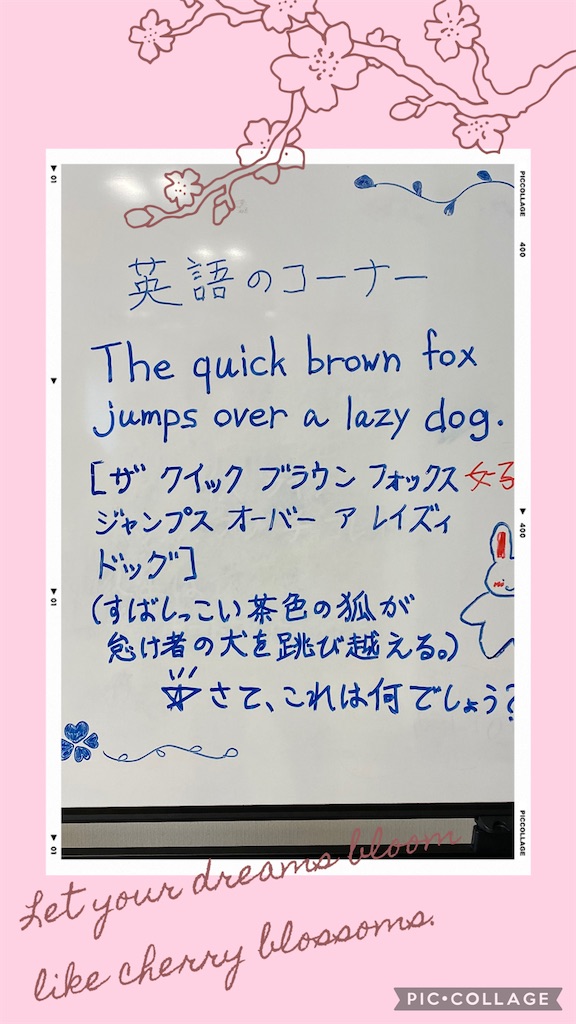 英語のコーナー
The quick brown fox
jumps over a lazy dog.
[ザ クイック ブラウン フォックス
ジャンプス オーバー ア レイズィ
ドッグ]
(すばしっこい茶色の狐が
怠け者の犬を跳び越える。)
さて、これは何でしょう?
女子
Let your dreams bloom
like cherry blossoms.
01
01
01
PICCOLLAGE
400
400
PICCOLLAGE
PIC•COLLAGE